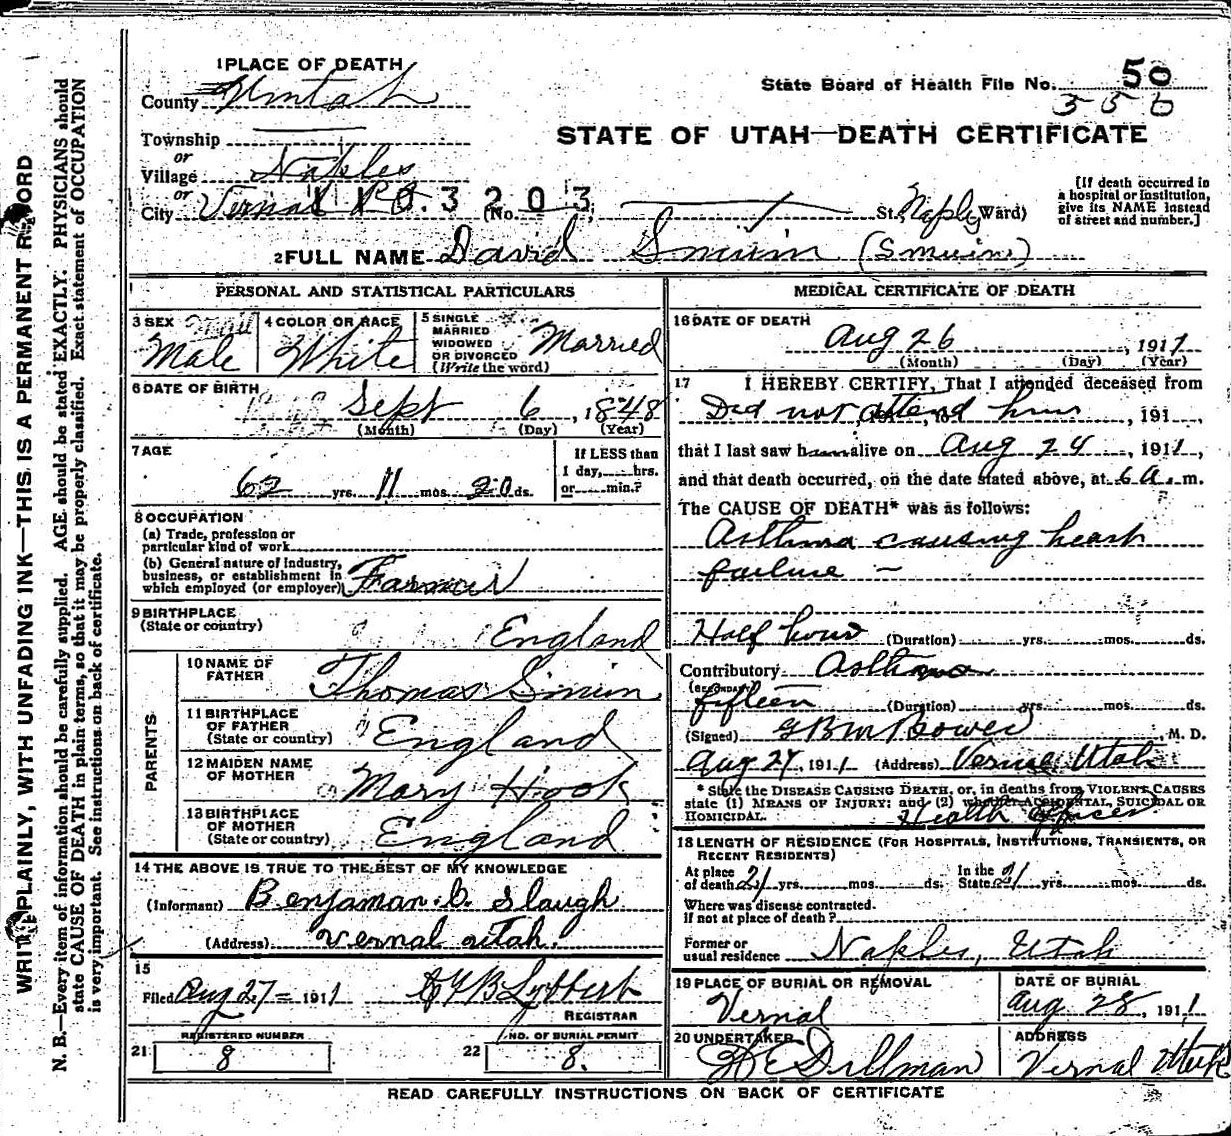 1 PLACE OF DEATH
County Uintah
State Board of Health File No. 50
356
STATE OF UTAH—DEATH CERTIFICATE
Township
or
Village Naples
or
City Vernal 3203 (No. St. Naples Ward)
[If death occurred in
a hospital or institution,
give its NAME instead
of street and number.]
2 FULL NAME David Smuin (Smuin)
PERSONAL AND STATISTICAL PARTICULARS
3 SEX Male
4 COLOR OR RACE White
5 SINGLE
MARRIED
WIDOWED
OR DIVORCED
(Write the word) Married
6 DATE OF BIRTH
Sept 6, 1848
(Month) (Day) (Year)
7 AGE
62 yrs. 11 mos. 20 ds.
If LESS than
1 day, hrs.
or min.?
8 OCCUPATION
(a) Trade, profession or
particular kind of work
(b) General nature of Industry,
business, or establishment in
which employed (or employer) Farmer
9 BIRTHPLACE
(State or country) England
PARENTS
10 NAME OF
FATHER Thomas Smuin
11 BIRTHPLACE
OF FATHER
(State or country) England
12 MAIDEN NAME
OF MOTHER Mary Hook
13 BIRTHPLACE
OF MOTHER
(State or country) England
14 THE ABOVE IS TRUE TO THE BEST OF MY KNOWLEDGE
(Informant) Benjaman. C. Slaugh
(Address) Vernal Utah.
15
Filed Aug 27 - 1911
REGISTRAR
REGISTERED NUMBER
21 8
NO. OF BURIAL PERMIT
22 8.
MEDICAL CERTIFICATE OF DEATH
16 DATE OF DEATH
Aug 26, 1911
(Month) (Day) (Year)
17 I HEREBY CERTIFY, That I attended deceased from
Did not attend him, 191
that I last saw him alive on Aug 24, 1911,
and that death occurred, on the date stated above, at 6 A. m.
The CAUSE OF DEATH* was as follows:
Asthma causing heart
failure -
Half hour (Duration) yrs. mos. ds.
Contributory Asthma
(SECONDARY)
fifteen (Duration) yrs. mos. ds.
(Signed) M. D.
Aug 27, 1911 (Address) Vernal Utah
* State the DISEASE CAUSING DEATH, or, in deaths from VIOLENT CAUSES
state (1) MEANS OF INJURY; and (2) whether ACCIDENTAL, SUICIDAL OR
HOMICIDAL.
Health Officer
18 LENGTH OF RESIDENCE (FOR HOSPITALS, INSTITUTIONS, TRANSIENTS, OR
RECENT RESIDENTS)
At place
of death 21 yrs. mos. ds.
In the
State 21 yrs. mos. ds.
Where was disease contracted.
if not at place of death?
Former or
usual residence Naples, Utah
19 PLACE OF BURIAL OR REMOVAL
Vernal
DATE OF BURIAL
Aug 28, 1911
20 UNDERTAKER
Dillman
ADDRESS
Vernal Utah
READ CAREFULLY INSTRUCTIONS ON BACK OF CERTIFICATE
WRITE PLAINLY, WITH UNFADING INK—THIS IS A PERMANENT RECORD
N. B.—Every item of information should be carefully supplied. AGE should be stated EXACTLY. PHYSICIANS should
state CAUSE OF DEATH in plain terms, so that it may be properly classified. Exact statement of OCCUPATION
is very important. See instructions on back of certificate.